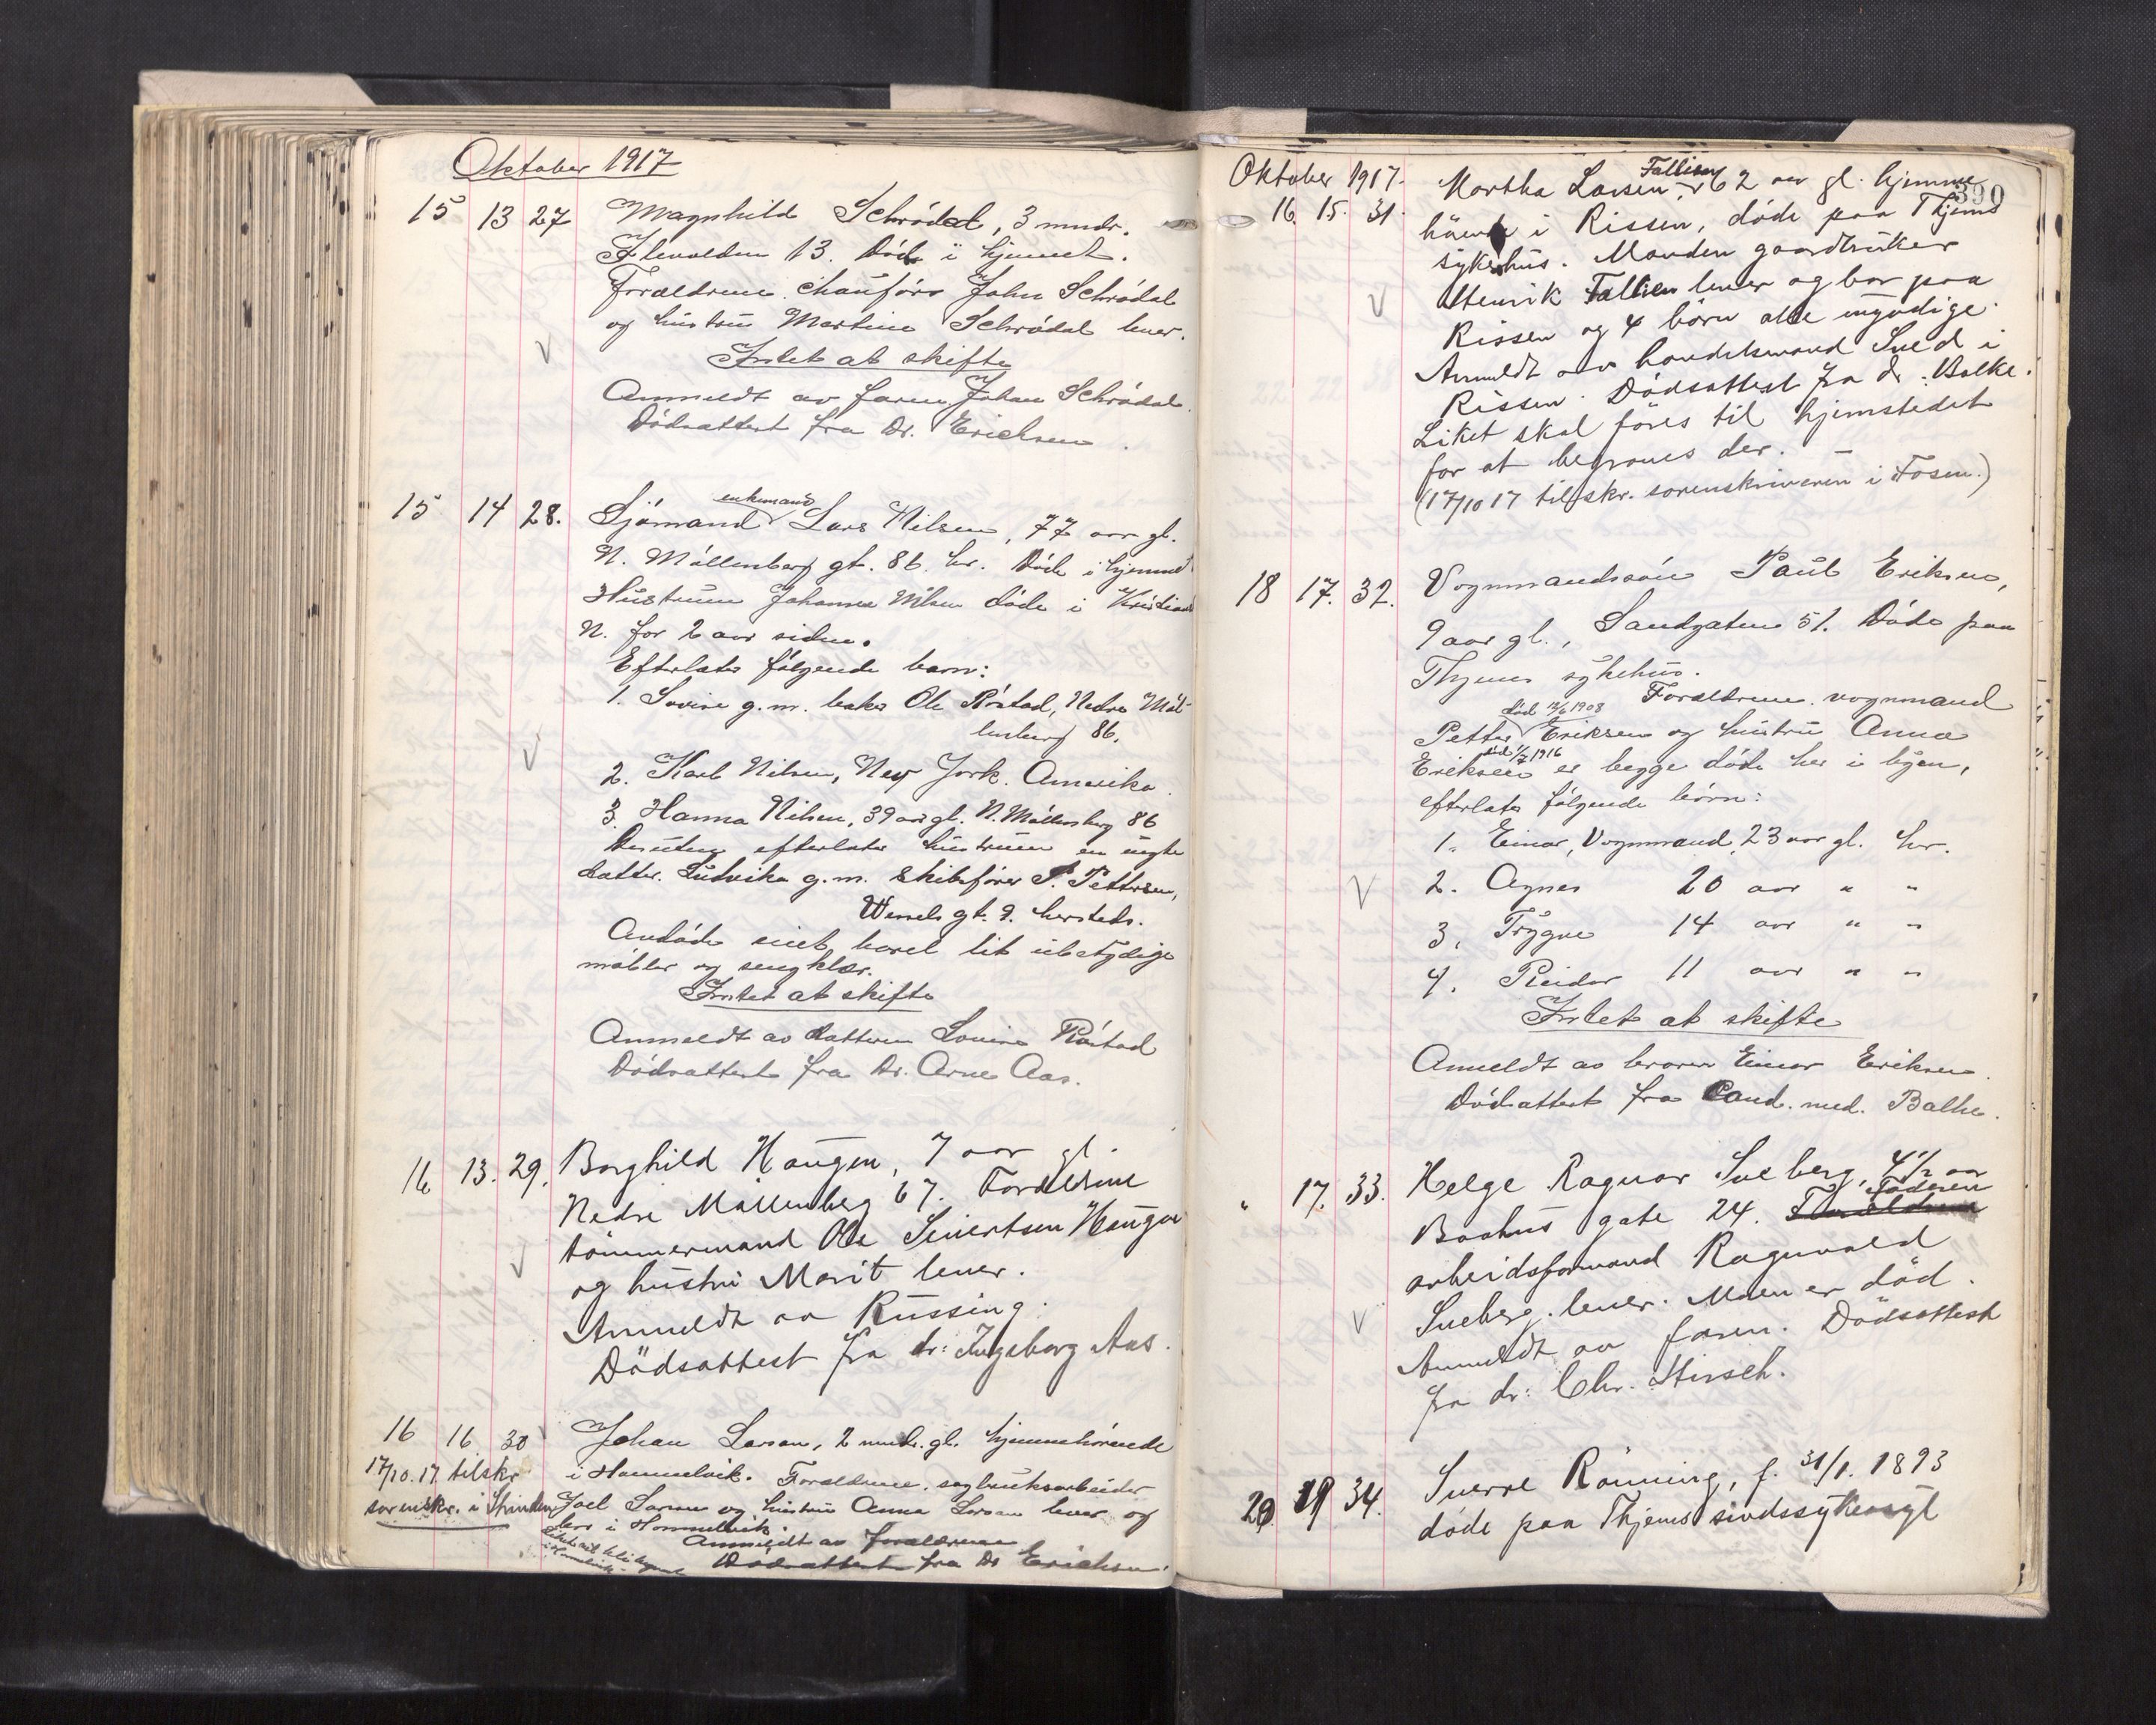 Oktober 1917
15 13 27 Magnhild Schrødal, 3 mndr.
Ilevolden 13. Døde i hjemmet.
Forældrene. chauførr John Schrødal
og hustru Martine Schrødal lever.
Intet at skifte
Anmeldt av faren Johan Schrødal.
Dødsattest fra Dr. Erichsen.
15 14 28. Sjømand enkemand Lars Nilsen, 77 aar gl.
N. Møllenberg gt. 86. her. Døde i hjemmet
Hustruen Johanna Nilsen døde i Kristians
N. for 2 aar siden.
Efterlater følgende barn:
1. Lovise g.m. baker Ole Røstad, Nedre Møl-
lenberg 86.
2. Karl Nilsen, New York. Amerika.
3. Hanna Nilsen, 39 aar gl. N. Møllenberg 86
Desuten efterlater hustruen en uegte
datter. Ludvika g.m. Skibsfører P. Pettersen,
Wessels gt. 9. hersteds.
Avdøde eiet bare litt ubetydige
møbler og sengklær.
Intet at skifte
Anmeldt av datteren Lovise Røstad
Dødsattest fra Dr. Arne Aas.
16 13. 29. Borghild Haugen, 7 aar gl.
Nedre Møllenberg 67. Forældrene
tømmermand Ole Sivertsen Haugen
og hustru Marit lever.
Anmeldt av Russing.
Dødsattest fra dr: Ingeborg Aas.
16 16 30 Johan Larsen, 2 mndr. gl. hjemmehørende
17/10.17 tilskr. i Hommelvik. Forældrene, sagbruksarbeider
sorenskr. i Strinden Joel Larsen og hustru Anna Larsen lever og
bor i Hommelvik.
Anmeldt av forældrene
i Hommelvik.
Dødsattest fra Dr Erichsen.
390
Oktober 1917.
Fallien
16. 15. 31. Martha Larsen, 62 aar gl. hjemme
hörende i Rissen, døde paa Thjems
sykehus. Manden gaardbruker
Henrik Fallien lever og bor paa
Rissen og 4 börn alle myndige.
Anmeldt av handelsmand Sved i
Rissen. Dödsattest fra dr. Balke.
Liket skal föres til hjemstedet
for at begraves der. –
(17/10 17 tilskr. sorenskriveren i Fosen.)
18 17. 32. Vognmandssøn Paul Eriksen,
9 aar gl., Sandgaten 51. Døde paa
Thjems sykehus.
Forældrene. vognmand
død 12/6 1908
Petter Eriksen og hustru Anna
død 1/2 1916
Eriksen er begge døde her i byen,
efterlater følgende börn:
1. Einar, Vognmand, 23 aar gl. her.
2. Agnes 20 aar " "
3. Trygve 14 aar " "
4. Reidar 11 aar " "
Intet at skifte
Anmeldt av broren Einar Eriksen.
Dødsattest fra Cand. med. Balke.
" 17. 33. Helge Ragnar Sveberg, 4½ aar
Baahus gate 24. Forældrene Faderen
arbeidsformand Ragnvald
Sveberg. lever. Moren er död.
Anmeldt av faren. Dödsattest
fra dr: Chr. Hirsch.
20 19 34. Sverre Rönning, f. 31/1. 1893
døde paa Thjems sindssykeasyl